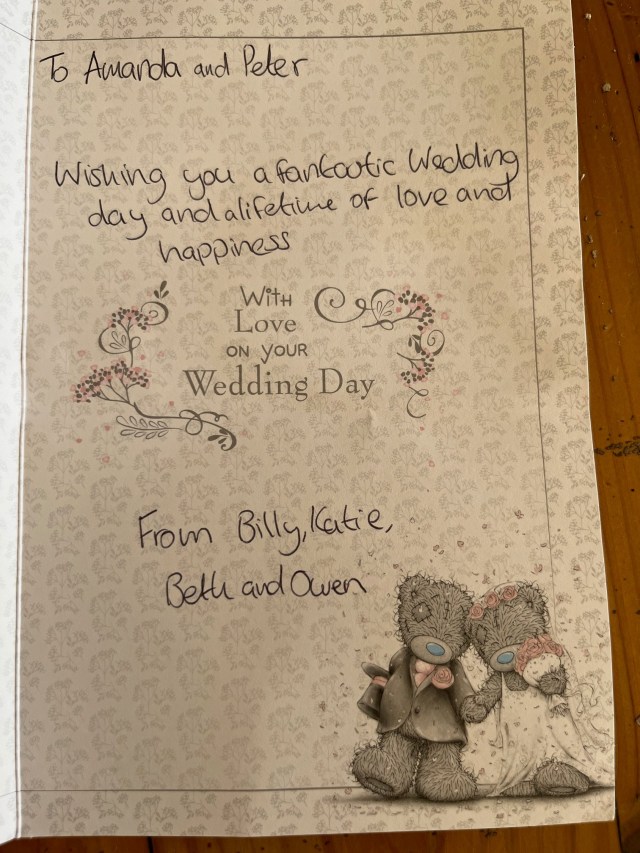 To Amanda and Peter
Wishing you a fantastic Wedding
day and a lifetime of love and
happiness
With
Love
on your
Wedding Day
From Billy, Katie,
Beth and Owen